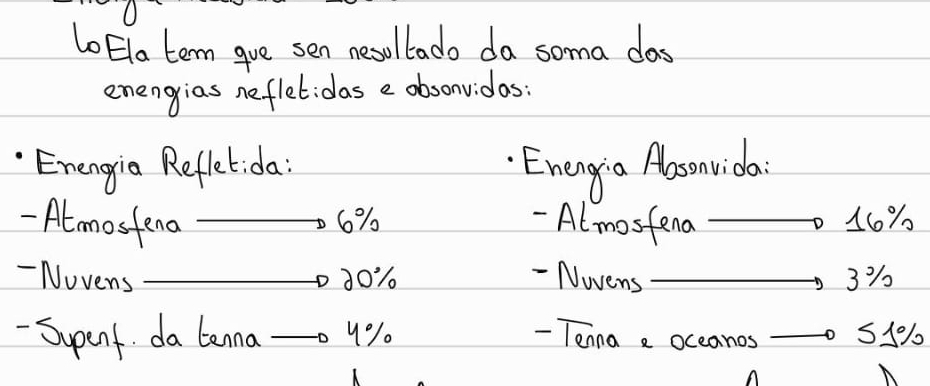 Ela tem que ser resultado da soma das
energias refletidas e absorvidas:
• Energia Refletida:
- Atmosfera → 6%
- Nuvens → 20%
- Superf. da terra → 4%
• Energia Absorvida:
- Atmosfera → 16%
- Nuvens → 3%
- Terra e oceanos → 51%